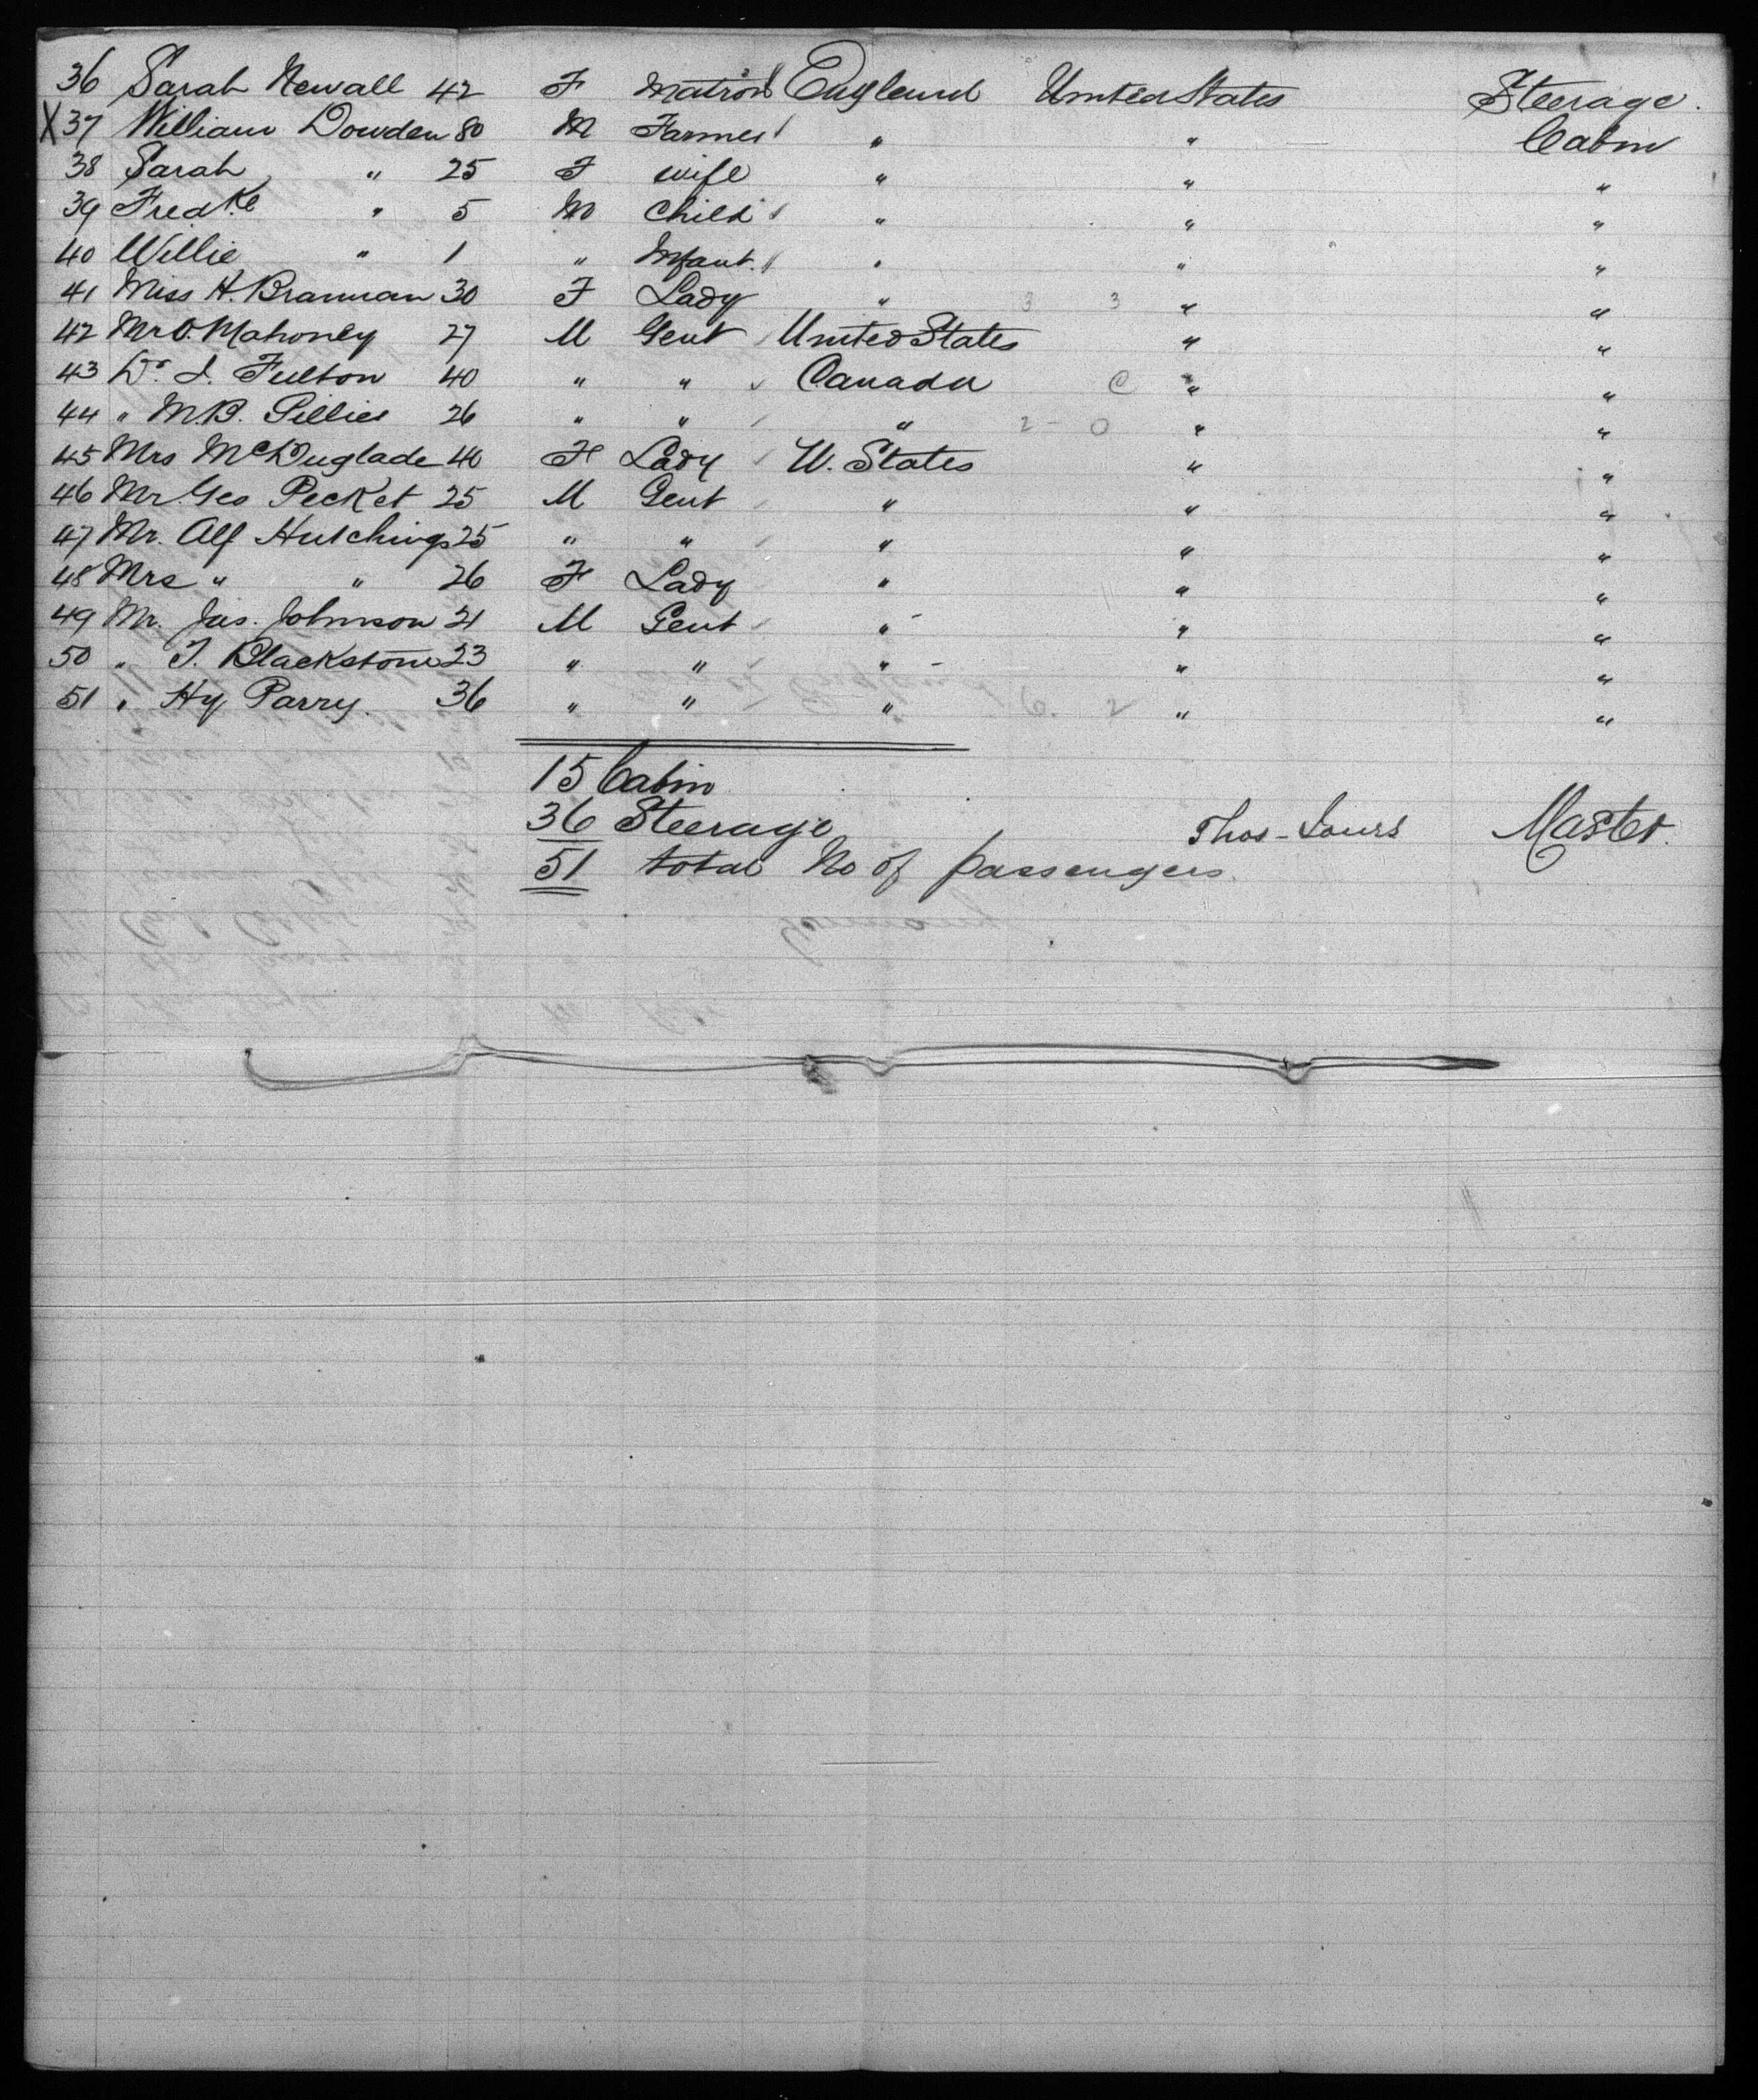 36 Sarah Newall 42 F Matron England United States Steerage.
X 37 William Dowden 80 M Farmer " " Cabin
38 Sarah " 25 F wife " " "
39 Fredke " 5 M Child " " "
40 Willie " 1 " Infant. " " "
41 Miss H. Brannan 30 F Lady " 3 3 " "
42 Mr O. Mahoney 27 M Gent United States " "
43 Dr. J. Fulton 40 " " Canada C " "
44 " M.B. Gillies 26 " " " 2 - 0 " "
45 Mrs McDuglade 40 F Lady U. States " "
46 Mr. Geo Pecket 25 M Gent " " "
47 Mr. Alf Hutchings 25 " " " " "
48 Mrs " " 26 F Lady " " "
49 Mr. Jas. Johnson 21 M Gent " " "
50 " T. Blackstone 23 " " " " "
51 " Hy Parry. 36 " " " 6. 2 " "
15 Cabin
36 Steerage Thos - Master.
51 total No of passengers.